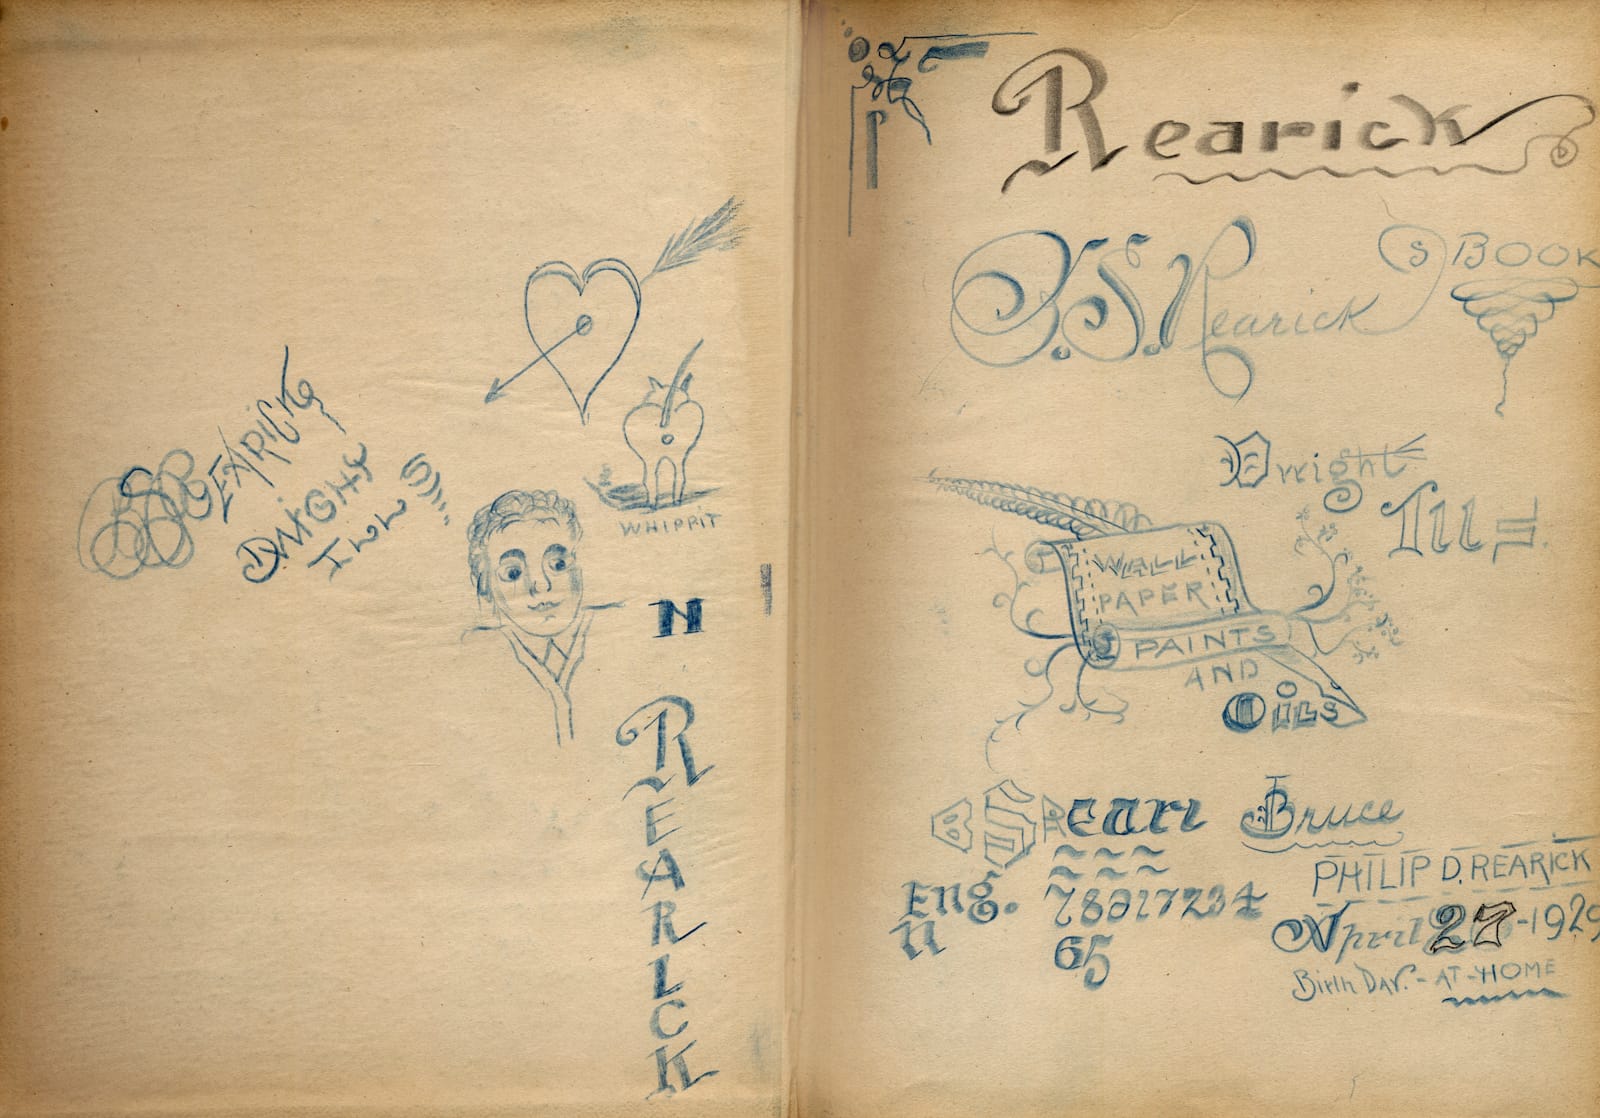 BS REARICK
DWIGHT
ILLS
WHIPPIT
N
REARICK
Rearick
B.S. Rearick
s BOOK
Dwight
Ill
WALL
PAPER
PAINTS
AND
OiLS
BS Reari
Bruce
PHILIP D. REARICK
Eng.
n
65
April 27-1929
Birth Day.-AT-HOME